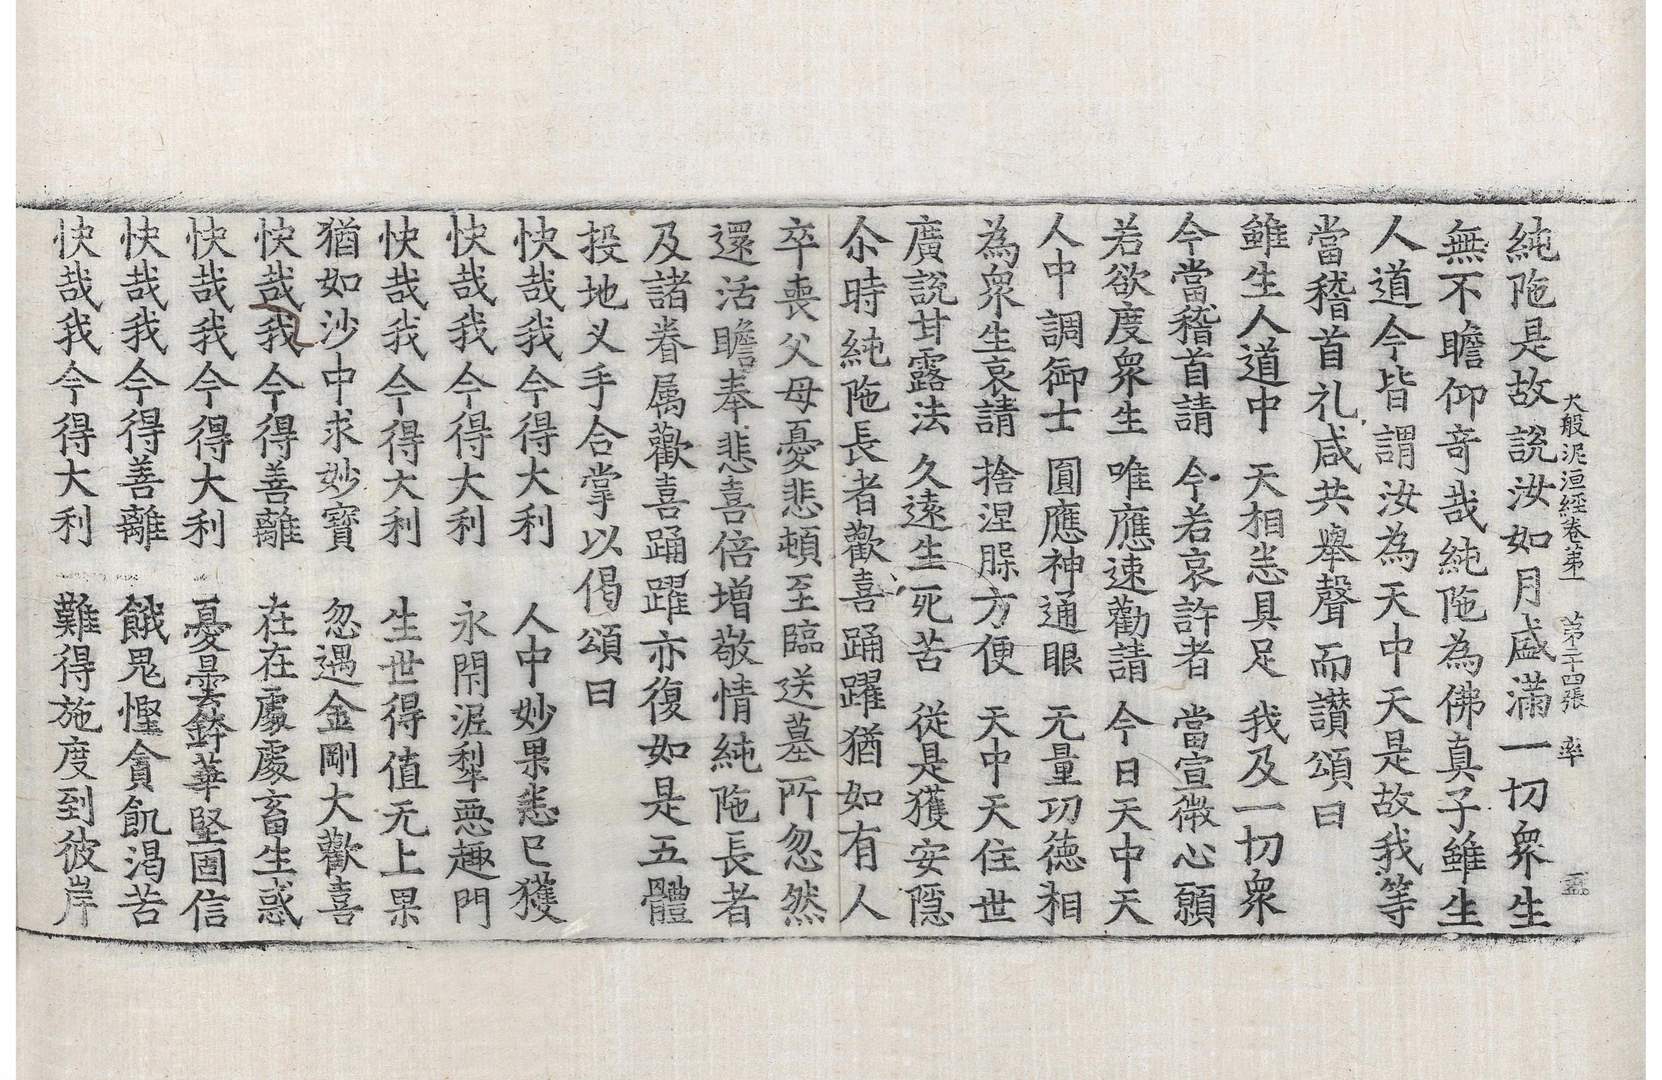 大般泥洹經卷第一 第二十四張 率
純陁是故說汝如月盛滿一切衆生
無不瞻仰奇哉純陁為佛真子雖生
人道今皆謂汝為天中天是故我等
當稽首礼咸共舉聲而讃頌曰
雖生人道中 天相悉具足 我及一切衆
今當稽首請 今若哀許者 當宣微心願
若欲度衆生 唯應速勸請 今日天中天
人中調御士 圓應神通眼 无量功德相
為衆生哀請 捨涅槃方便 天中天住世
廣說甘露法 久遠生死苦 從是獲安隱
尒時純陁長者歡喜踊躍猶如有人
卒喪父母憂悲頓至臨送墓所忽然
還活瞻奉悲喜倍增敬情純陁長者
及諸眷属歡喜踊躍亦復如是五體
投地叉手合掌以偈頌曰
快哉我今得大利 人中妙果悉已獲
快哉我今得大利 永閉泥犁惡趣門
快哉我今得大利 生世得值无上果
猶如沙中求妙寶 忽遇金剛大歡喜
快哉我今得善離 在在處處畜生惑
快哉我今得大利 憂曇鉢華堅固信
快哉我今得善離 餓鬼慳貪飢渴苦
快哉我今得大利 難得施度到彼岸